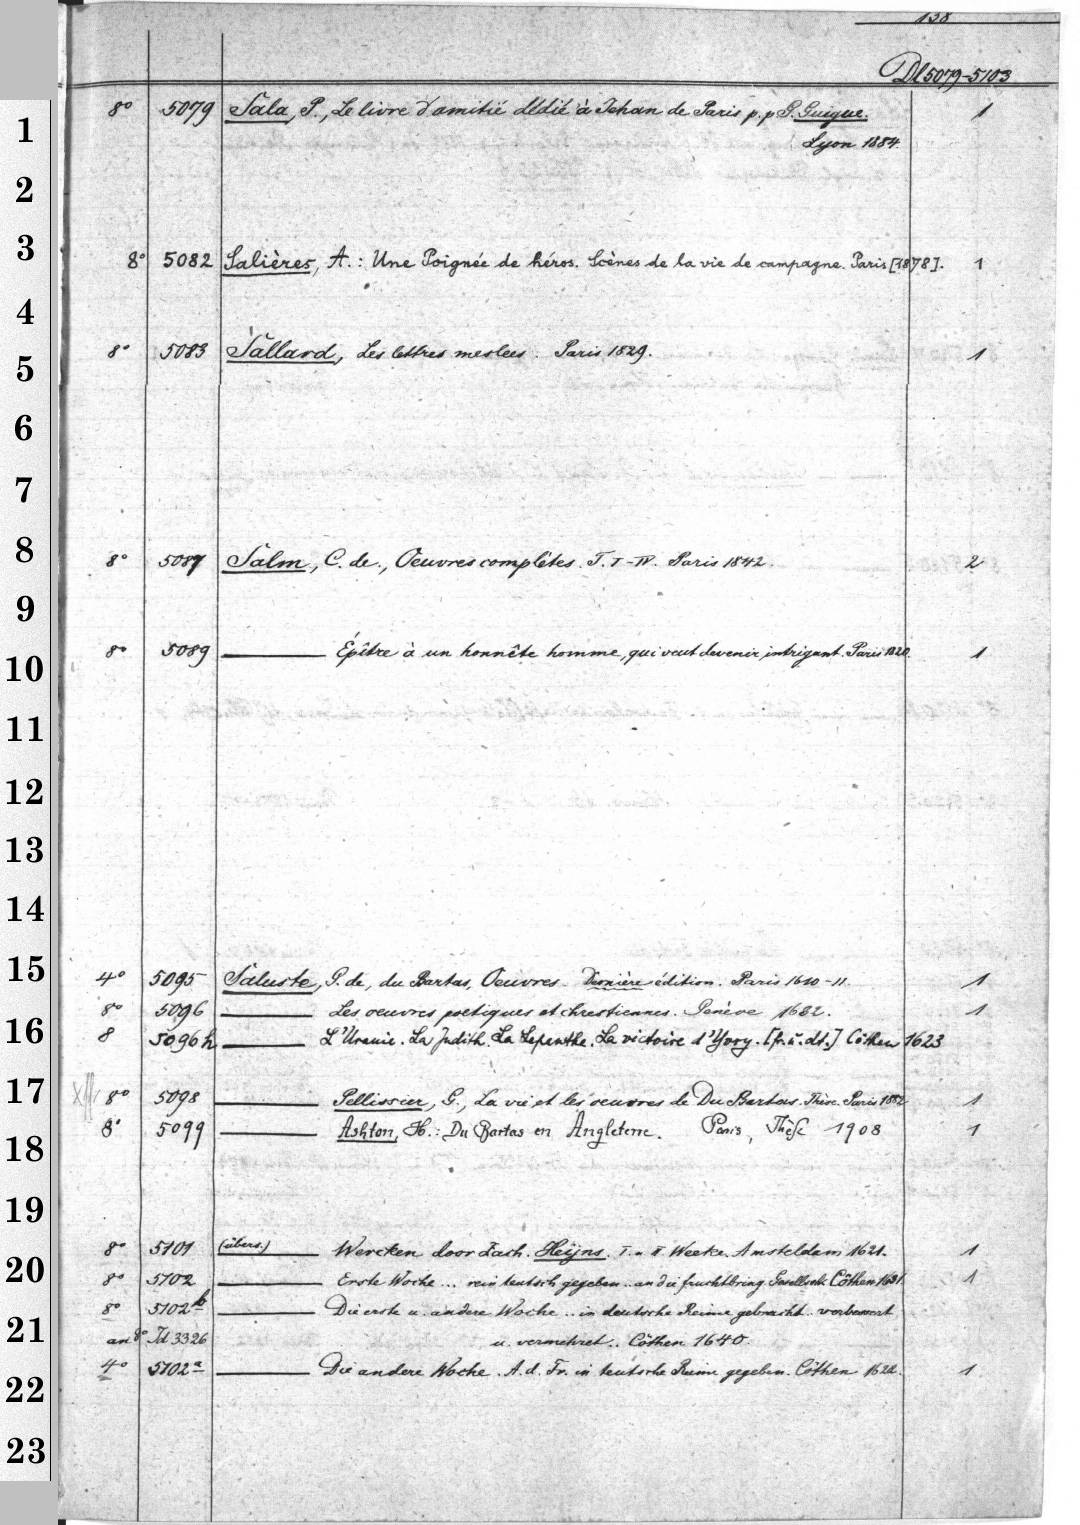 138
Dl 5079-5103
8° 5079 Sala, P., Le livre d'amitié dédié à Jehan de Paris p. p. G. Guigue. 1
Lyon 1884.
1
2
3
8° 5082 Salières, A.: Une Poignée de héros. Scènes de la vie de campagne. Paris [1878]. 1
4
8° 5083 Sallard, Les lettres meslees. Paris 1829. 1
5
6
7
8
8° 5087 Salm, C. de., Oeuvres complètes. T. I-IV. Paris 1842. 2
9
8° 5089 ——— Épître à un honnête homme, qui veut devenir intrigant. Paris 1820. 1
10
11
12
13
14
15
4° 5095 Saluste, G. de, du Bartas, Oeuvres. Dernière édition. Paris 1610-11. 1
8° 5096 ——— Les oeuvres poetiques et chrestiennes. Genève 1632. 1
16
8 5096h ——— L'Uranie. La Judith. La Lepanthe. La victoire d'Yvry. [fr. u. dt.] Cöthen 1623
17
8° 5098 ——— Pellissier, G., La vie et les oeuvres de Du Bartas. Thèse. Paris 1882 1
8° 5099 ——— Ashton, H.: Du Bartas en Angleterre. Paris, Thèse 1908 1
18
19
8° 5101 (übers.) ——— Wercken door Zach. Heÿns. I. u. II Weeke. Amsteldam 1621. 1
20
8° 5102 ——— Erste Woche ... rein teutsch gegeben .. an die fruchtbring. Gesellsch. Cöthen 1631. 1
8° 5102b ——— Die erste u. andere Woche .. in deutsche Reime gebracht .. verbessert
21
an 8° Td 3326 u. vermehret .. Cöthen 1640.
4° 5102a ——— Die andere Woche. A. d. Fr. in teutsche Reime gegeben. Cöthen 1622. 1
22
23